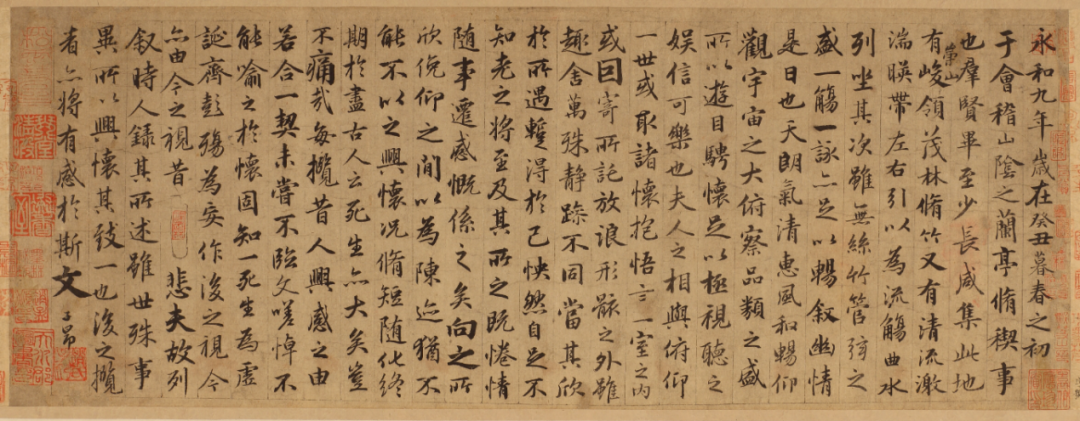 永和九年歲在癸丑暮春之初
于會稽山陰之蘭亭脩稧事
也羣賢畢至少長咸集此地
崇山
有峻領茂林脩竹又有清流激
湍暎帶左右引以為流觴曲水
列坐其次雖無絲竹管弦之
盛一觴一詠亦足以暢叙幽情
是日也天朗氣清惠風和暢仰
觀宇宙之大俯察品類之盛
所以遊目騁懷足以極視聽之
娛信可樂也夫人之相與俯仰
一世或取諸懷抱悟言一室之內
或因寄所託放浪形骸之外雖
趣舍萬殊静躁不同當其欣
於所遇蹔得於己怏然自足不
知老之將至及其所之既惓情
随事遷感慨係之矣向之所
欣俛仰之間以為陳迹猶不
能不以之興懷況脩短随化終
期於盡古人云死生亦大矣豈
不痛哉每攬昔人興感之由
若合一契未嘗不臨文嗟悼不
能喻之於懷固知一死生為虛
誕齊彭殤為妄作後之視今
亦由今之視昔 悲夫故列
叙時人錄其所述雖世殊事
異所以興懷其致一也後之攬
者亦將有感於斯文 子昂